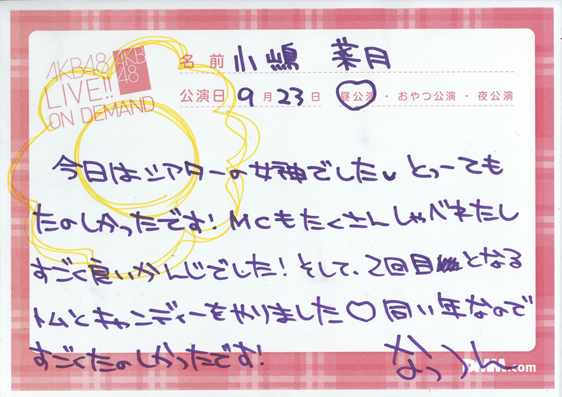 AKB48
LIVE!!
ON DEMAND
AKB
48
名前 小嶋 菜月
公演日 9月23日 昼公演・おやつ公演・夜公演
今日はシアターの女神でした とっーても
たのしかったです!MCもたくさんしゃべれたし
すごく良いかんじでした!そして、2回目となる
トムとキャンディーをやりました♡同い年なので
すごくたのしかったです!
なっつん
.com